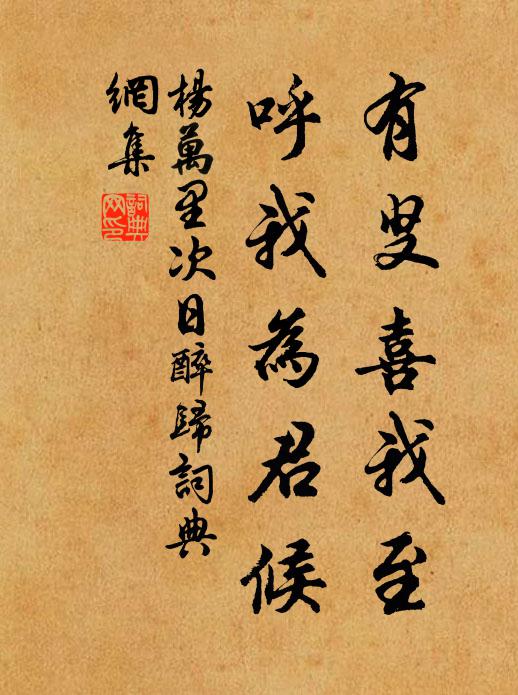 有叟喜我至
呼我為君候
楊萬里次日醉歸詞典
網集
詞典
网印